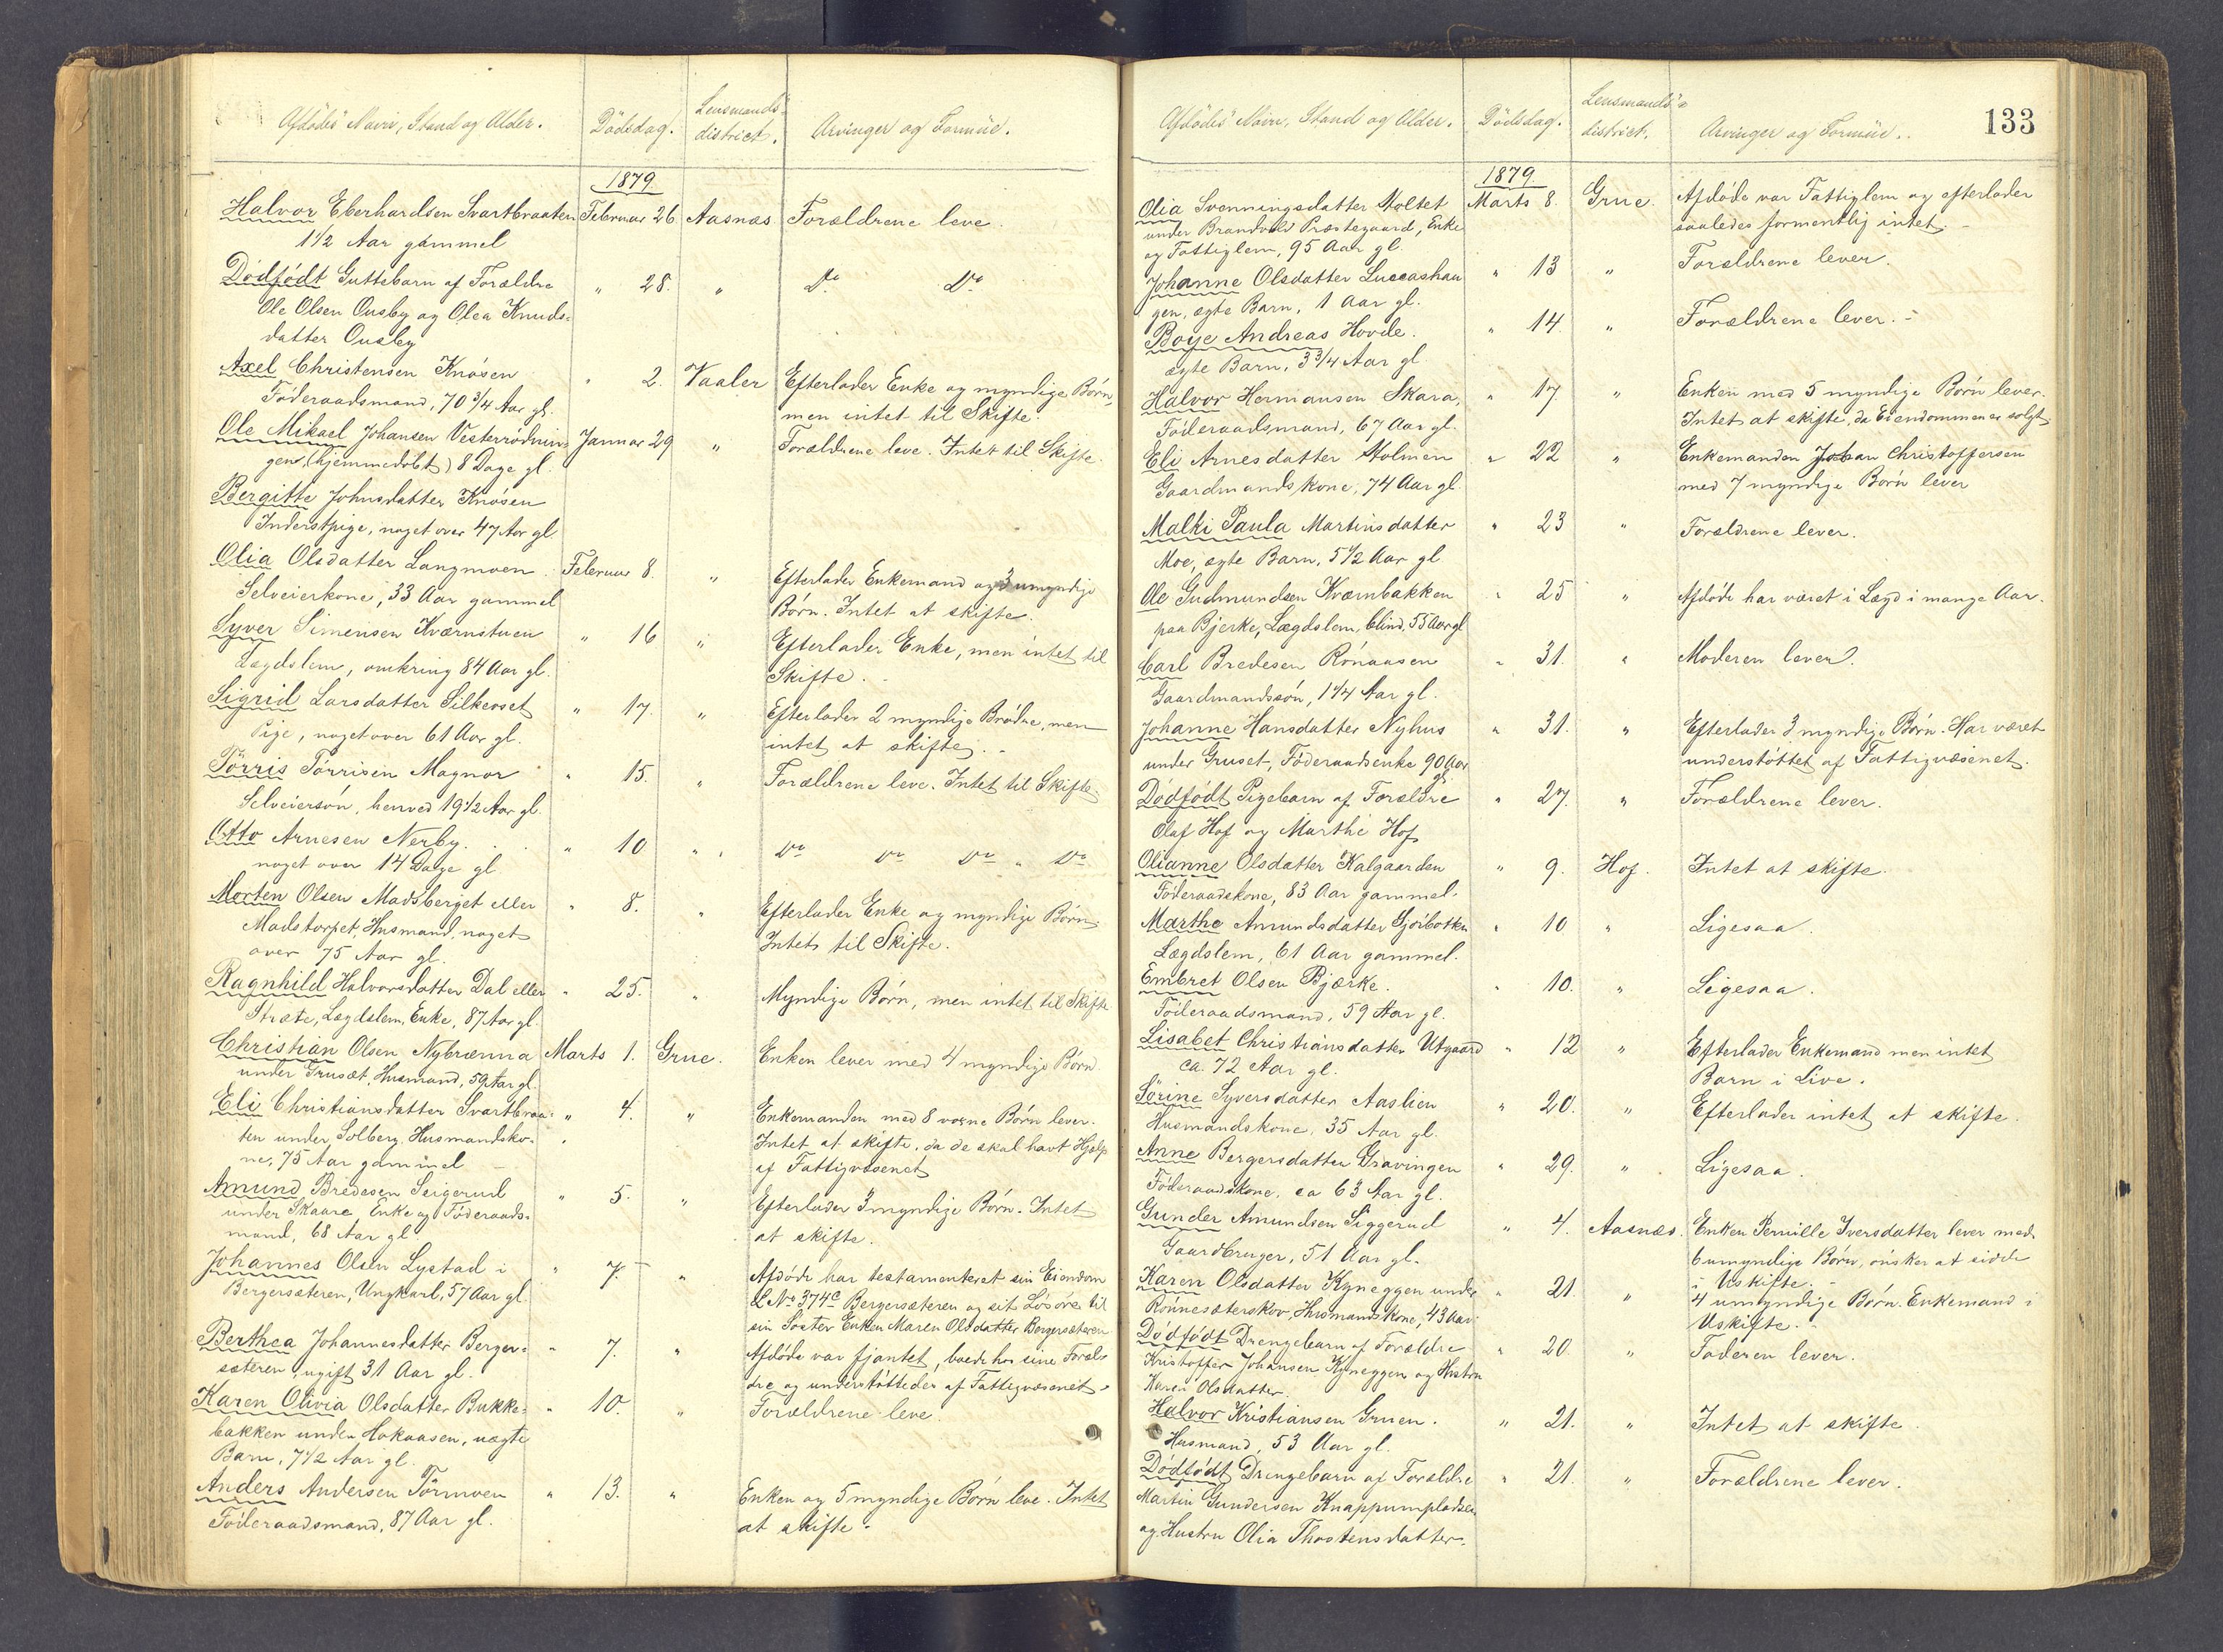 Afdödes Navn, Stand og Alder.
Dödsdag.
Lensmands-
district.
Arvinger og Formue.
1879.
Halvor Eberhardsen Svartbraaten Februar 26. Aasnæs Forældrene leve.
1 1/2 Aar gammel
Dödfödt Guttebarn af Forældre " 28. " Do Do
Ole Olsen Ousby og Olea Knuds-
datter Ousby
Axel Christensen Knösen " 2. Vaaler Efterlader Enke og myndige Börn,
Föderaadsmand, 70 3/4 Aar gl. men intet til Skifte.
Ole Mikael Johansen Vesterrödnin- Januar 29 " Forældrene leve. Intet til Skifte.
gen, (hjemmedöbt) 8 Dage gl.
Bergitte Johnsdatter Knösen
Inderstpige, noget over 47 Aar gl
Olia Olsdatter Langmoen Februar 8. " Efterlader Enkemand og 3 umyndige
Selveierkone, 33 Aar gammel Börn. Intet at skifte.
Syver Simensen Kværnstuen " 16 " Efterlader Enke, men intet til
Lægdslem, omkring 84 Aar gl. Skifte.
Sigrid Larsdatter Silkeset " 17. " Efterlader 2 myndige Brödre, men
Pige, noget over 61 Aar gl. intet at skifte.
Törris Törrisen Magnor " 15. " Forældrene leve. Intet til Skifte.
Selveiersön, henved 19 1/2 Aar gl.
Otto Arnesen Nerby. " 10 " Do Do Do " Do
noget over 14 Dage gl
Morten Olsen Madsberget eller " 8. " Efterlader Enke og myndige Börn.
Madstorpet, Husmand, noget Intet til Skifte.
over 75 Aar gl.
Ragnhild Halvorsdatter Dal eller " 25. " Myndige Börn, men intet til Skifte
Stræte, Lægdslem, Enke, 87 Aar gl.
Christian Olsen Nybrænna Marts 1. Grue. Enken lever med 4 myndige Börn
under Grusæt, Husmand, 59 Aar gl.
Eli Christiansdatter Svartbraa- " 4. " Enkemanden med 8 voxne Börn lever.
ten under Solberg. Husmandsko- Intet at skifte, da de skal havt Hjelp
ne, 75 Aar gammel af Fattigvæsenet
Amund Bredesen Seigerud " 5. " Efterlader 3 myndige Börn. Intet
under Skaare Enke og Föderaads- at skifte.
mand, 68 Aar gl
Johannes Olsen Lystad i " 7. " Afdöde har testamenteret sin Eiendom
Bergersæteren, Ungkarl, 57 Aar gl. L No 374c Bergersæteren og sit Lösöre til
sin Söster Enken Maren Olsdatter Bergersæteren
Berthea Johannesdatter Berger- " 7. " Afdöde var fjantet, boede hos sine Foræl-
sæteren, ugift 31 Aar gl. dre og understöttedes af Fattigvæsenet.
Karen Olivia Olsdatter Bukke- " 10. " Forældrene leve.
bakken under Hokaasen, uægte
Barn, 7 1/2 Aar gl.
Anders Andersen Törmoen " 13. " Enken og 5 myndige Börn leve. Intet
Föderaadsmand, 87 Aar gl. at skifte.
133
Afdödes Navn, Stand og Alder.
Dödsdag.
Lensmands-
district.
Arvinger og Formue.
1879.
Olia Svenningsdatter Holtet Marts 8. Grue. Afdöde var Fattiglem og efterlader
under Brandvold Præstegaard, Enke saaledes formentlig intet.
og Fattiglem, 95 Aar gl.
Johanne Olsdatter Luccashau " 13 " Forældrene lever.
gen, ægte Barn, 1 Aar gl.
Boye Andreas Hovde. " 14. " Forældrene lever.
ægte Barn, 3 3/4 Aar gl.
Halvor Hermansen Skara, " 17. " Enken med 5 myndige Börn lever.
Föderaadsmand, 67 Aar gl. Intet at skifte, da Eiendommen er solgt
Eli Arnesdatter Holmen " 22 " Enkemanden Johan Christoffersen
Gaardmandskone, 74 Aar gl. med 7 myndige Börn lever
Malki Paula Martinsdatter " 23 " Forældrene lever.
Moe, ægte Barn, 5 1/2 Aar gl
Ole Gudmundsen Kværnbakken " 25 " Afdöde har været i Lægd i mange Aar.
paa Bjerke, Lægdslem, blind, 55 Aar gl
Carl Bredesen Rönaasen " 31. " Moderen lever.
Gaardmandssön, 1 1/4 Aar gl.
Johanne Hansdatter Nyhus " 31. " Efterlader 3 myndige Börn. Har været
under Gruset, Föderaadsenke 90 Aar understöttet af Fattigvæsenet.
gl.
Dödfödt Pigebarn af Forældre " 27. " Forældrene lever.
Olaf Hof og Marthe Hof
Olianne Olsdatter Kalgaarden " 9. Hof. Intet at skifte
Föderaadskone, 83 Aar gammel.
Marthe Amundsdatter Sjöbotten " 10 " Ligesaa.
Lægdslem, 61 Aar gammel.
Embret Olsen Bjærke. " 10. " Ligesaa.
Föderaadsmand, 59 Aar gl.
Lisabet Christiansdatter Utgaard " 12 " Efterlader Enkemand men intet
ca. 72 Aar gl. Barn i Live.
Sörine Syversdatter Aaslien " 20. " Efterlader intet at skifte.
Husmandskone, 35 Aar gl.
Anne Bergersdatter Gravingen " 29. " Ligesaa.
Föderaadskone, ca 63 Aar gl.
Gunder Amundsen Siggerud " 4. Aasnæs. Enken Pernille Iversdatter lever med
Gaardbruger, 51 Aar gl. 6 umyndige Börn, önsker at sidde
i Uskifte.
Karen Olsdatter Kyneggen under " 21. " 4 umyndige Börn. Enkemand i
Rönnesæterskov, Husmandskone, 43 Aar. Uskifte.
Dödfödt Drengebarn af Forældre " 20. " Faderen lever.
Kristoffer Johansen Kyneggen og Hustru
Karen Olsdatter.
Halvor Kristiansen Gruen. " 21. " Intet at skifte.
Husmand, 53 Aar gl.
Dödfödt Drengebarn af Forældre " 21. " Forældrene lever.
Martin Gundersen Knappumpladsen
og Hustru Olia Thostensdatter.